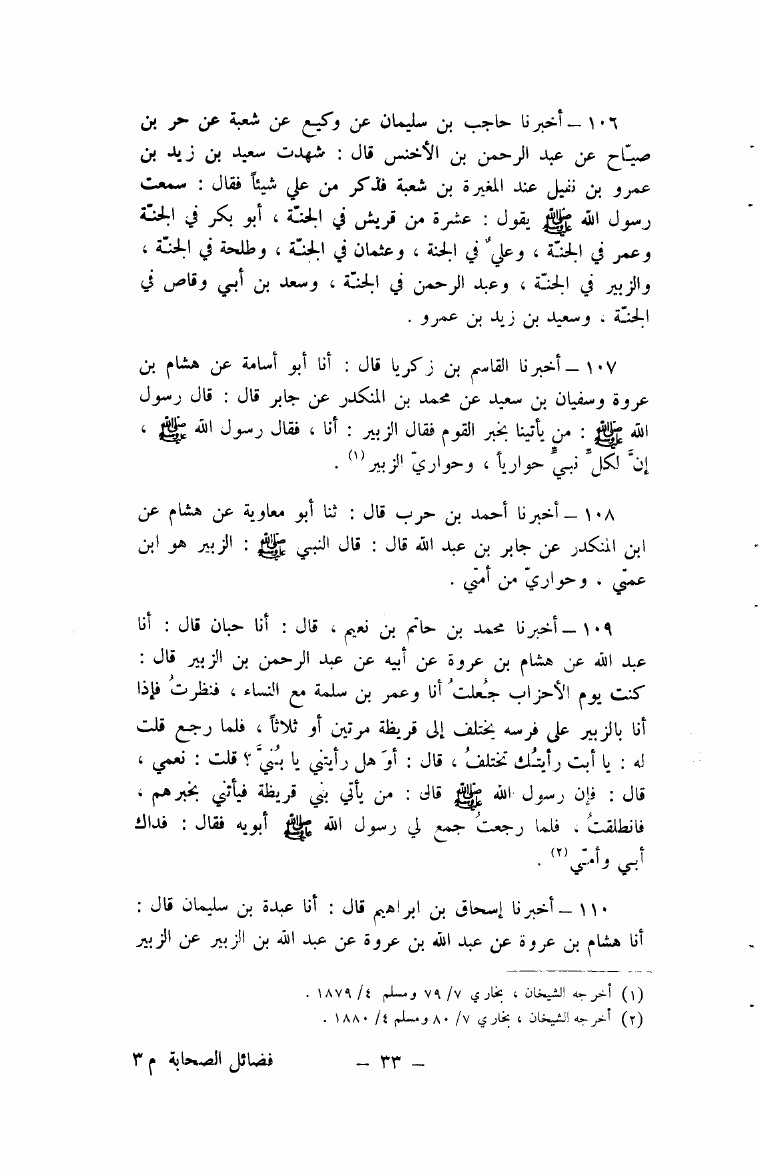 ١٠٦ – أخبرنا حاجب بن سليمان عن وكيع عن شعبة عن حر بن
صيّاح عن عبد الرحمن بن الأخنس قال : شهدت سعيد بن زيد بن
عمرو بن نفيل عند المغيرة بن شعبة فذكر من علي شيئاً فقال : سمعت
رسول الله ﷺ يقول : عشرة من قريش في الجنّة ، أبو بكر في الجنّة
وعمر في الجنّة ، وعليٌ في الجنة ، وعثمان في الجنّة ، وطلحة في الجنّة ،
والزبير في الجنّة ، وعبد الرحمن في الجنّة ، وسعد بن أبي وقاص في
الجنّة . وسعيد بن زيد بن عمرو .
١٠٧ – أخبرنا القاسم بن زكريا قال : أنا أبو أسامة عن هشام بن
عروة وسفيان بن سعيد عن محمد بن المنكدر عن جابر قال : قال رسول
الله ﷺ : من يأتينا بخبر القوم فقال الزبير : أنا ، فقال رسول الله ﷺ ،
إنَّ لكلِّ نبيٍّ حوارياً ، وحواريّ الزبير (١) .
١٠٨ – أخبرنا أحمد بن حرب قال : ثنا أبو معاوية عن هشام عن
ابن المنكدر عن جابر بن عبد الله قال : قال النبي ﷺ : الزبير هو ابن
عمّتي . وحواريّ من أمتي .
١٠٩ – أخبرنا محمد بن حاتم بن نعيم ، قال : أنا حبان قال : أنا
عبد الله عن هشام بن عروة عن أبيه عن عبد الرحمن بن الزبير قال :
كنت يوم الأحزاب جُعلتُ أنا وعمر بن سلمة مع النساء ، فنظرتُ فإذا
أنا بالزبير على فرسه يختلف إلى قريظة مرتين أو ثلاثاً ، فلما رجع قلت
له : يا أبت رأيتُك تختلفُ ، قال : أوَ هل رأيتني يا بُنيَّ ؟ قلت : نعمي ،
قال : فإن رسول الله ﷺ قال : من يأتي بني قريظة فيأتني بخبرهم ،
فانطلقتُ . فلما رجعتُ جمع لي رسول الله ﷺ أبويه فقال : فداك
أبي وأمّي (٢) .
١١٠ – أخبرنا إسحاق بن ابراهيم قال : أنا عبدة بن سليمان قال :
أنا هشام بن عروة عن عبد الله بن عروة عن عبد الله بن الزبير عن الزبير
(١) أخرجه الشيخان ، بخاري ٧/ ٧٩ ومسلم ٤/ ١٨٧٩ .
(٢) أخرجه الشيخان ، بخاري ٧/ ٨٠ ومسلم ٤/ ١٨٨٠ .
– ٣٣ – فضائل الصحابة م ٣